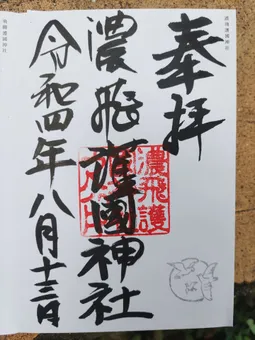 奉拝
濃飛護國神社
令和四年八月十三日
濃飛護